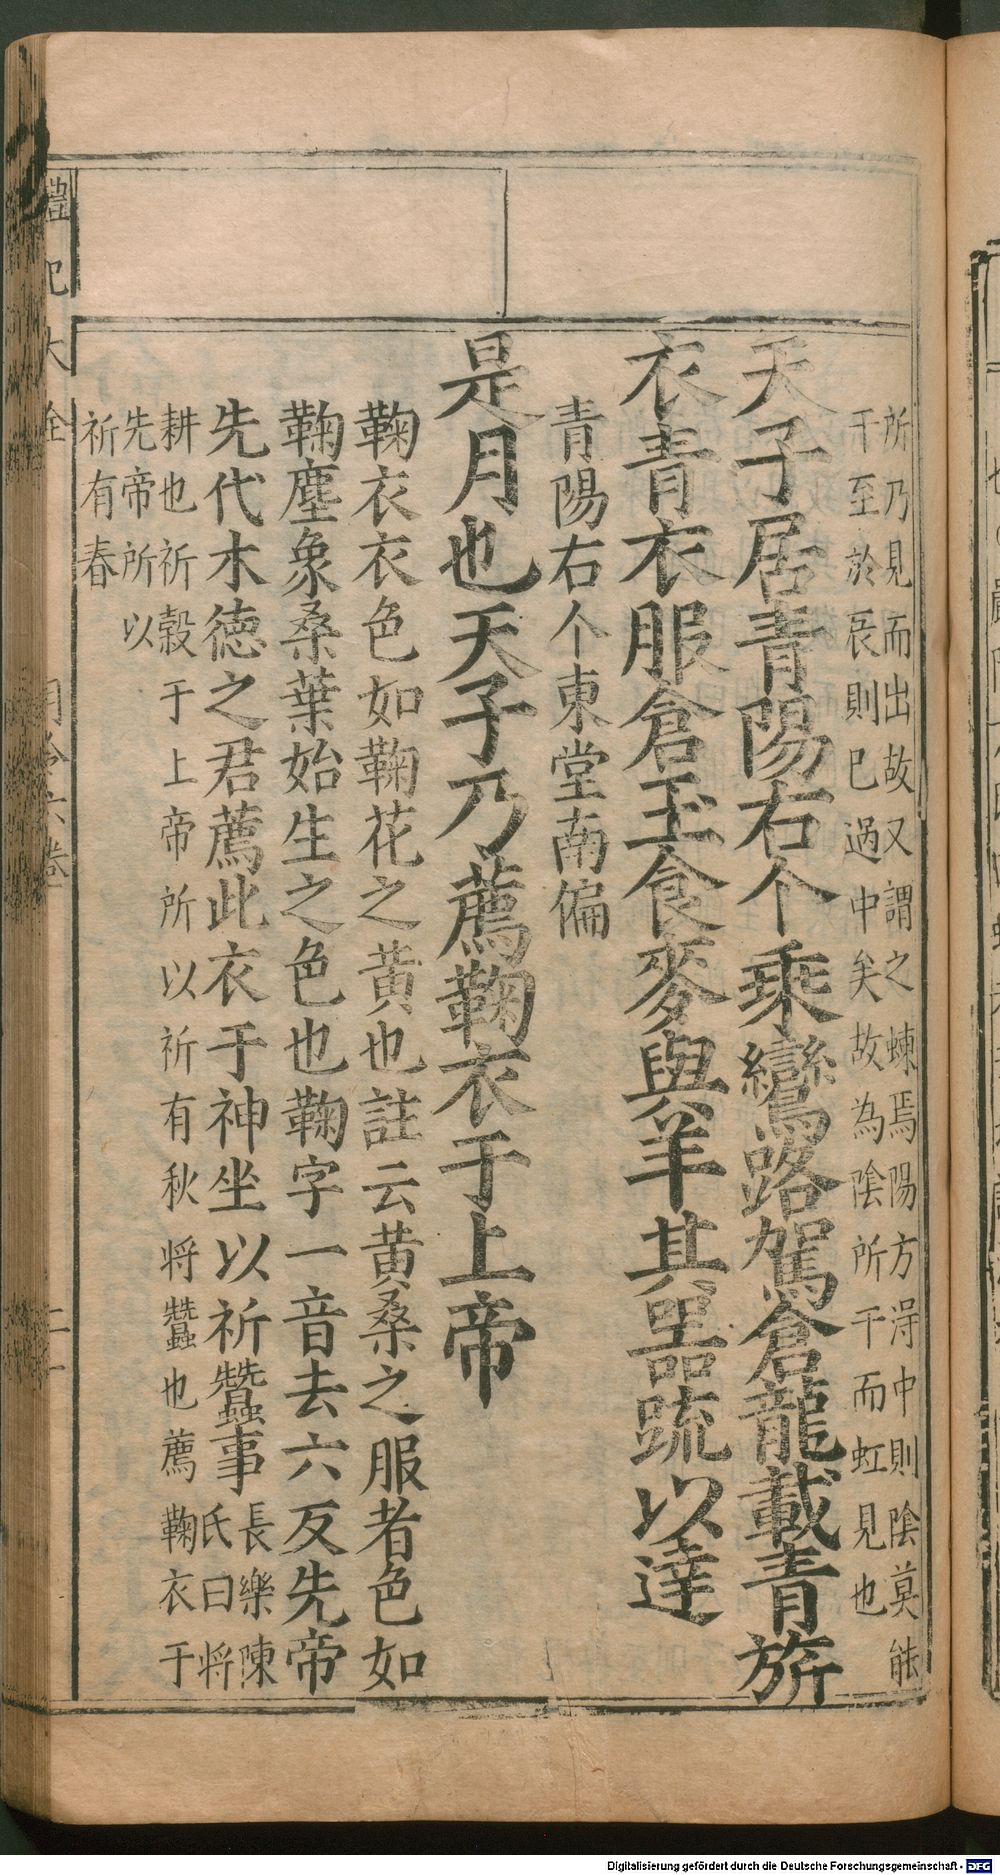 所乃見而出故又謂之蝀焉陽方淂中則陰莫能
干至於辰則已過中矣故為陰所干而虹見也
天子居青陽右个乘鸞路駕倉龍載青旂
衣青衣服倉玉食麥與羊其器䟽以達
青陽右个東堂南偏
是月也天子乃薦鞠衣于上帝
鞠衣衣色如鞠花之黃也註云黃桑之服者色如
鞠塵象桑葉始生之色也鞠字一音去六反先帝
先代木德之君薦此衣于神坐以祈蠶事
長樂陳
氏曰將
耕也祈穀于上帝所以祈有秋将蠶也薦鞠衣于
先帝所以
祈有春
禮記大全
月令六卷
Digitalisierung gefördert durch die Deutsche Forschungsgemeinschaft - DFG